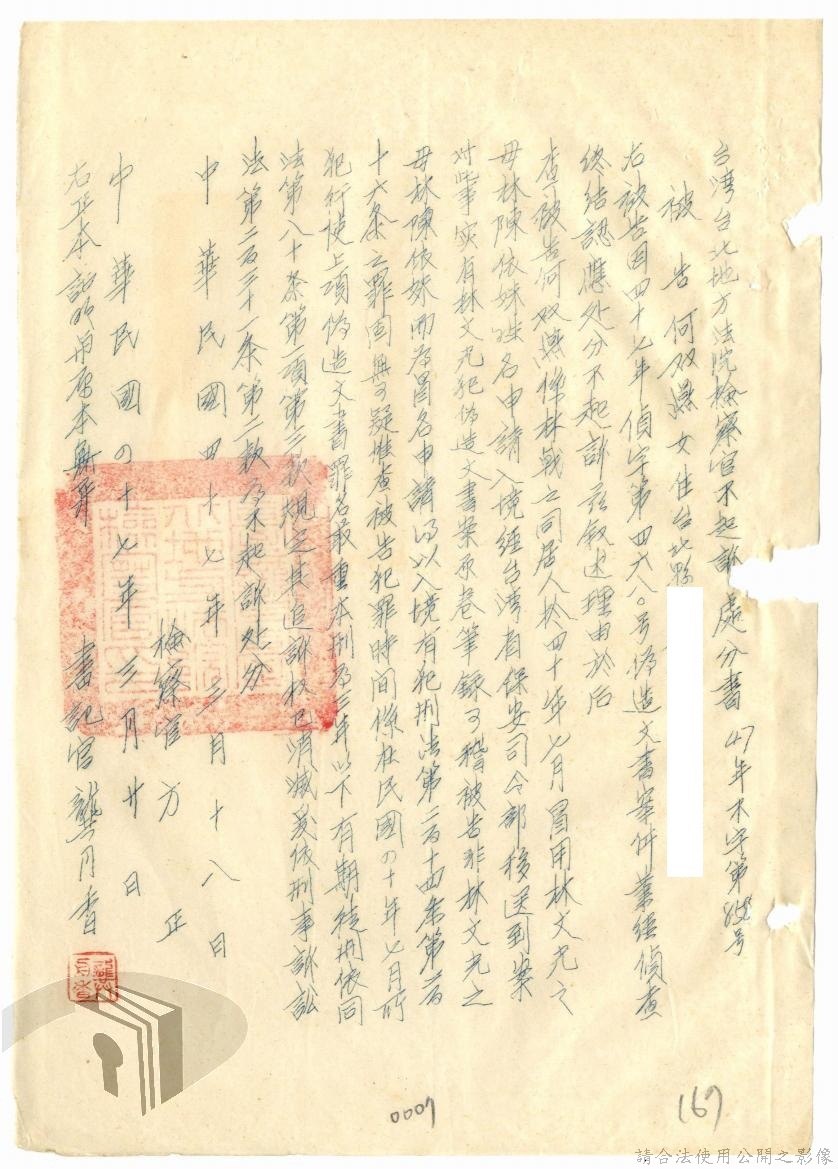 台湾台北地方法院檢察官不起訴處分書 47年不字第 号
被告何双燕女住台北縣
右被告因四十七年偵字第四六八〇号偽造文書案件業經偵查
終結認應处分不起訴茲叙述理由於后
查被告何双燕係林戟之同居人於四十年七月冒用林文光之
母林陳依妹姓名申請入境經台湾省保安司令部移送到案
对此事实有林文光犯偽造文書案原卷筆錄可稽被告非林文光之
母林陳依妹而為冒名申請得以入境有犯刑法第二百十四条第二百
十六条之罪固無可疑惟查被告犯罪時间係在民國四十年七月所
犯行使上項偽造文書罪名最重本刑為三年以下有期徒刑依同
法第八十条第一項第三款規定其追訴权已消滅爰依刑事訴訟
法第二百三十一条第二款為不起訴处分
中華民國四十七年三月十八日
檢察官方 正
中華民國四十七年三月廿 日
右正本証明与原本無異
書記官龔月香
0007
167
請合法使用公開之影像